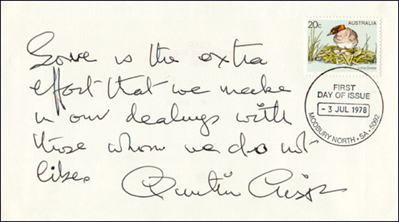 Love is the extra
effort that we make
in our dealings with
those whom we do not
like.
Quentin Crisp
20c
AUSTRALIA
FIRST
DAY OF ISSUE
- 3 JUL 1978
MODBURY NORTH · SA · 5092